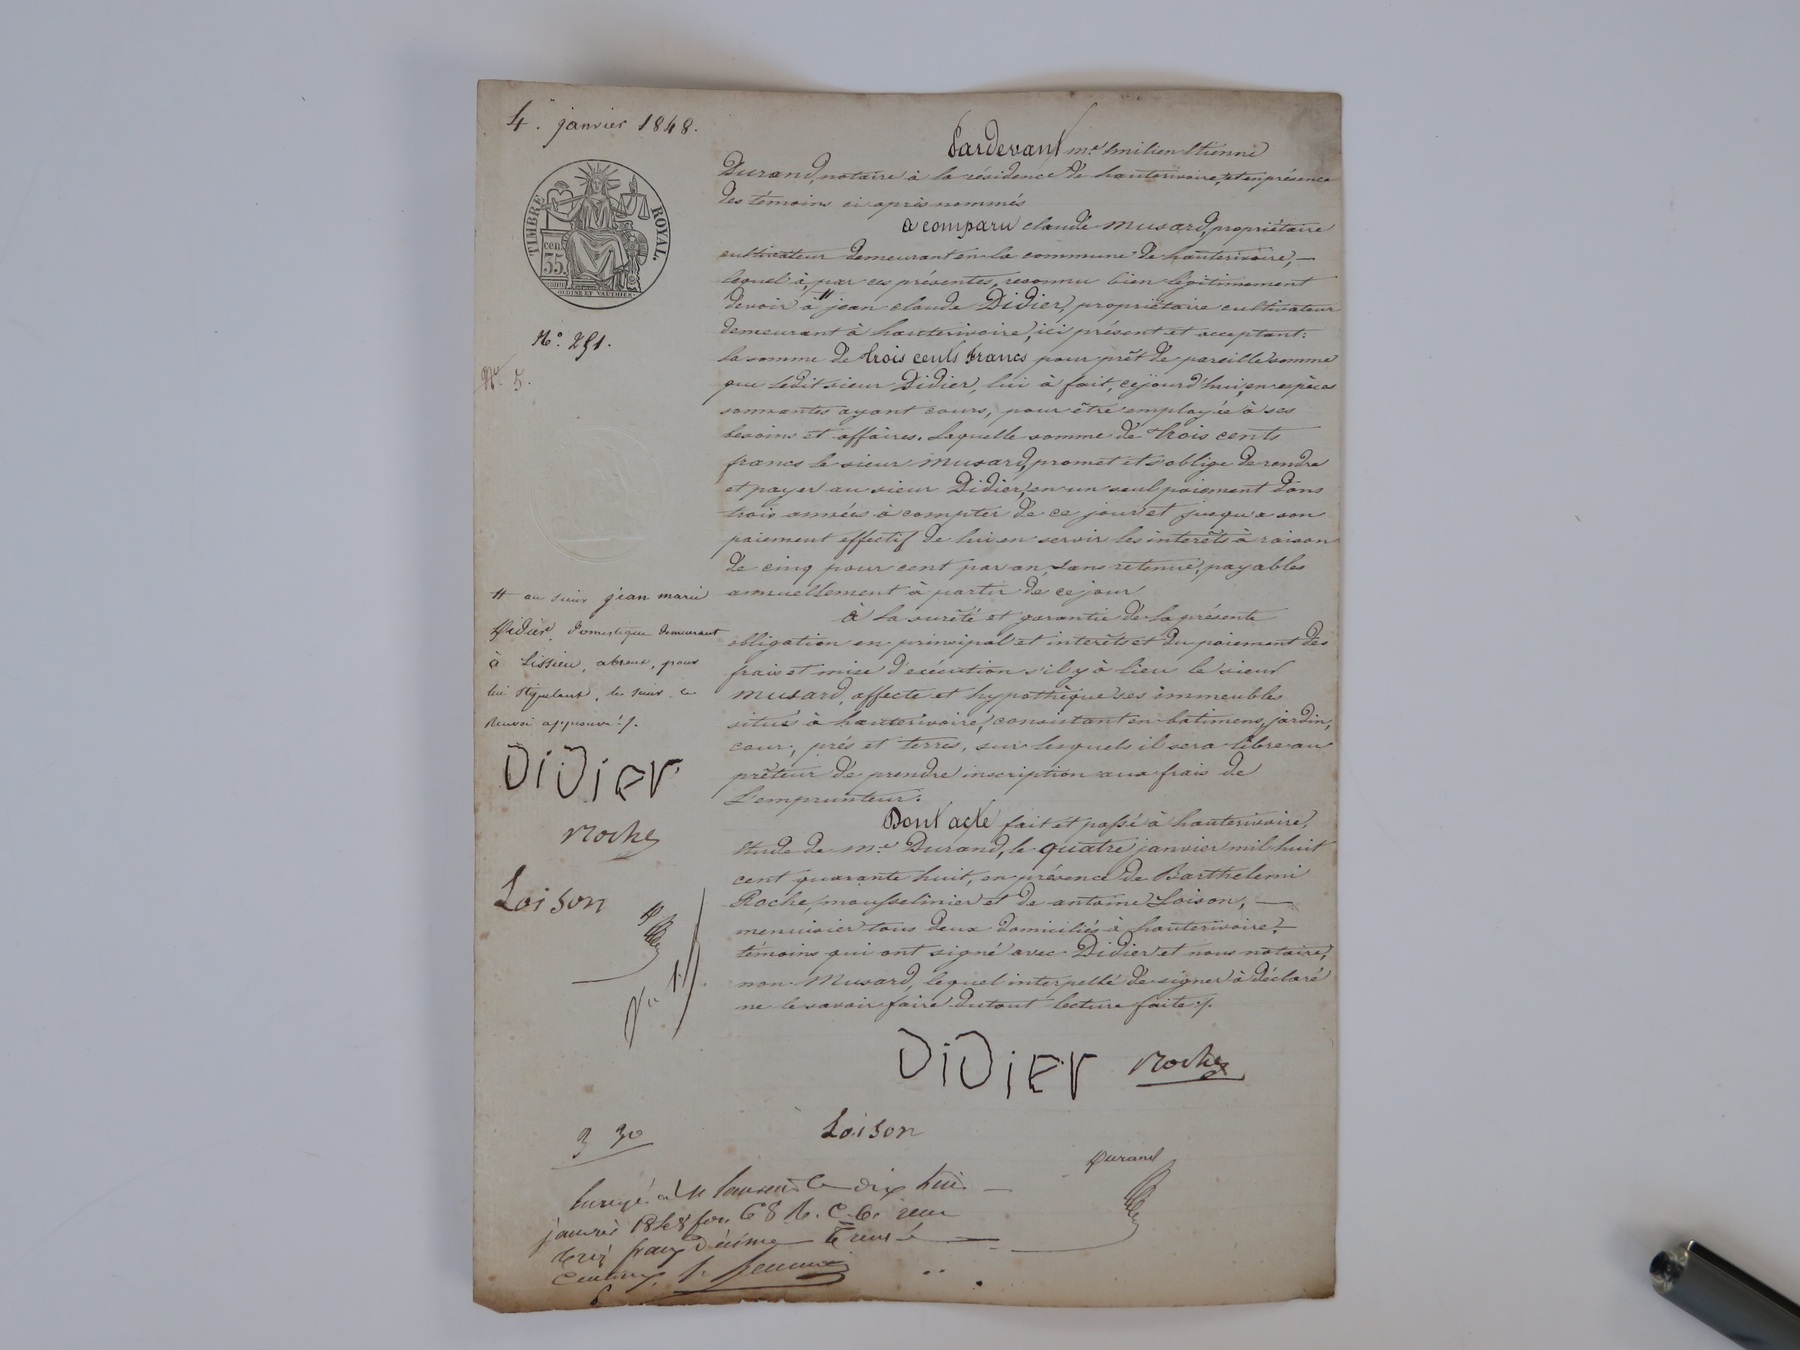 4. janvier 1848.
TIMBRE ROYAL.
cen.
35.
N.º 251.
N.º 5.
Pardevant m.e Emilien Etienne
Durand, notaire à la résidence de hauterivoire, et en présence
des témoins ci après nommés
a comparu claude Musard, propriétaire
cultivateur demeurant en la commune de hauterivoire, —
lequel à, par ces présentes, reconnu bien légitimement
devoir à # jean claude Didier, propriétaire cultivateur
demeurant à hauterivoire, ici présent et acceptant:
la somme de trois cents francs pour prêt de pareille somme
que ledit sieur Didier, lui à fait, cejourd'hui, en espèces
sonnantes ayant cours, pour être employée à ses
besoins et affaires. Laquelle somme de trois cents
francs le sieur Musard, promet et s'oblige de rendre
et payer au sieur Didier, en un seul paiement dans
trois années à compter de ce jour et jusqu'a son
paiement effectif de lui en servir les interêts à raison
de cinq pour cent par an, sans retenue, payables
annuellement à partir de ce jour
à la sureté et garantie de la présente
obligation en principal et interêts et du paiement des
frais et mise d'exécution s'il y à lieu le sieur
Musard, affecte et hypothèque ses immeubles
situés à hauterivoire, consistant en batimens, jardin,
cour, prés et terres, sur lesquels il sera libre au
prêteur de prendre inscription aux frais de
L'emprunteur.
Dont acte fait et passé à hauterivoire,
étude de m.e Durand, le quatre janvier mil huit
cent quarante huit, en présence de Barthelemi
Roche, mousselinier et de antoine Loison, —
menuisier tous deux domiciliés à hauterivoire, —
témoins qui ont signé avec Didier et nous notaire,
non Musard, lequel interpellé de signer à déclaré
ne le savoir faire dutout lecture faite ./.
# au sieur jean marie
Didier, domestique demeurant
à Lissieu, absent, pour
lui stipulant, le sieur
Renvoi approuvé ./.
Didier
Roche
Loison
Didier Roche
Loison
Durand
3 30
janvier 1848 fo. 68 R. C. 6. reçu
trois francs décime trente
centimes